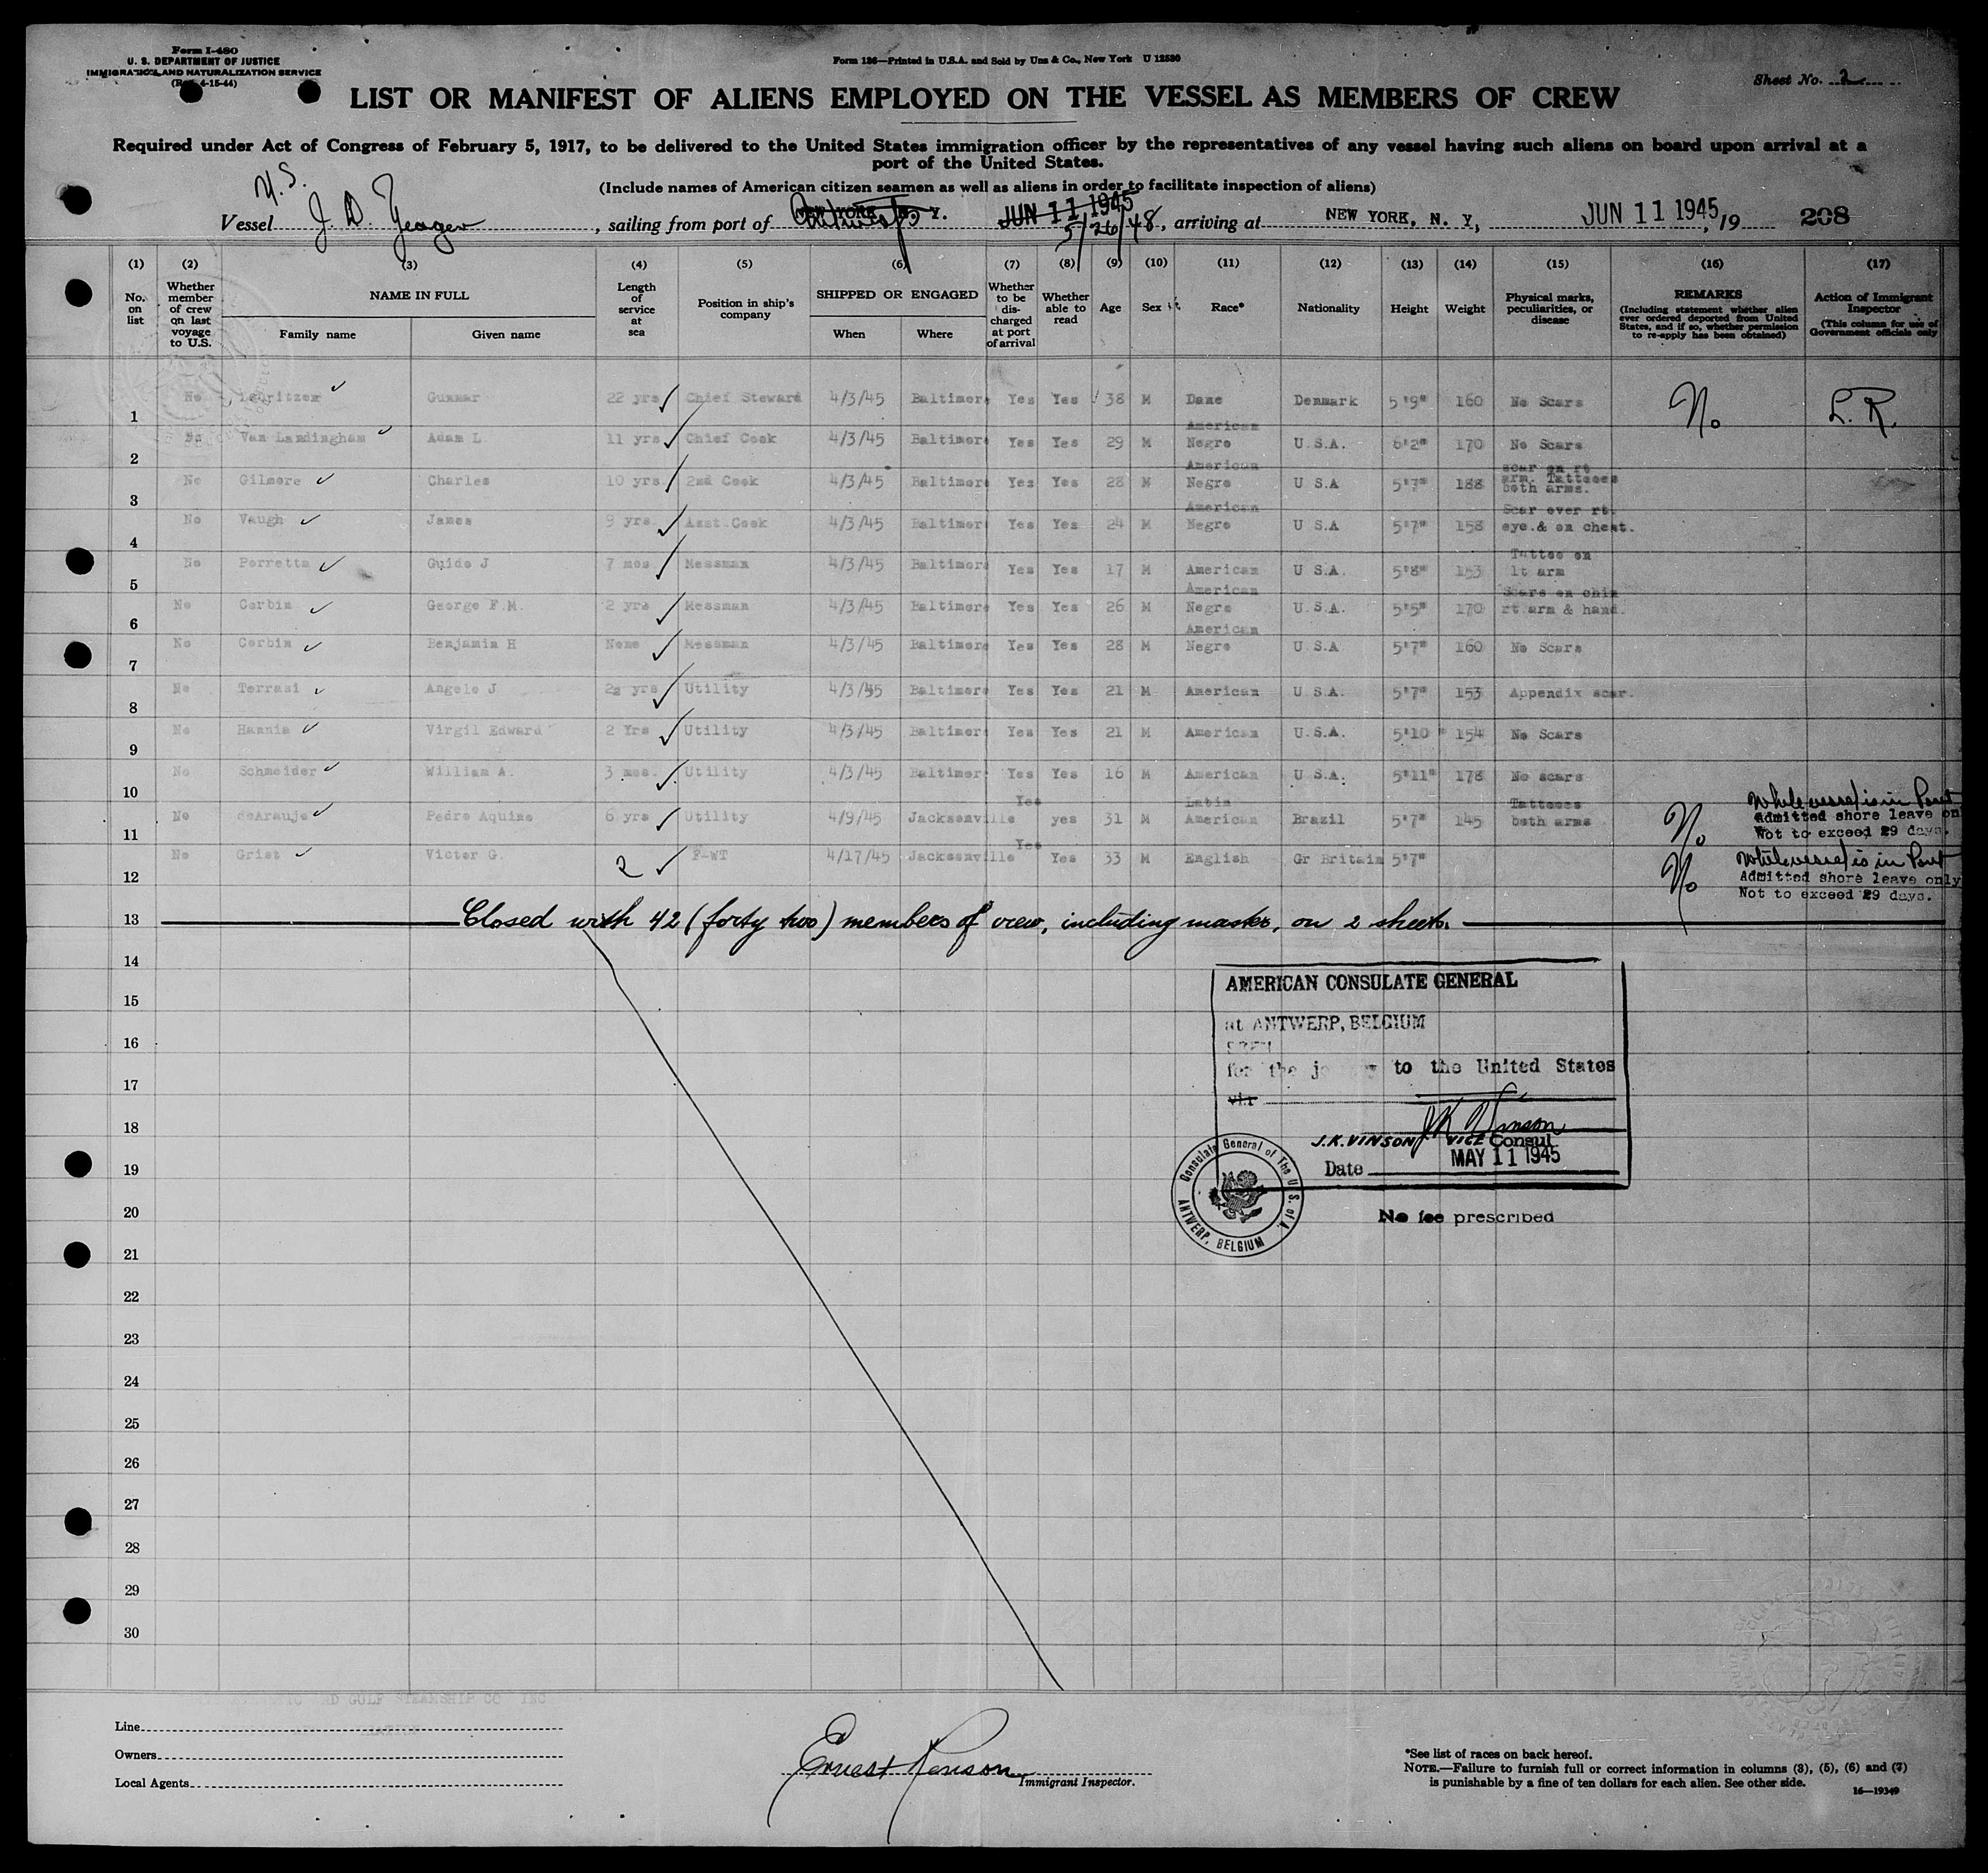 Form I-480
U. S. DEPARTMENT OF JUSTICE
IMMIGRATION AND NATURALIZATION SERVICE
(Rev. 4-15-44)
Form 136—Printed in U.S.A. and Sold by Unz & Co., New York U 12530
Sheet No. 2
LIST OR MANIFEST OF ALIENS EMPLOYED ON THE VESSEL AS MEMBERS OF CREW
Required under Act of Congress of February 5, 1917, to be delivered to the United States immigration officer by the representatives of any vessel having such aliens on board upon arrival at a
port of the United States.
(Include names of American citizen seamen as well as aliens in order to facilitate inspection of aliens)
Vessel J. D. Yeager, sailing from port of NEW YORK, N. Y. Antwerp JUN 11 1945 5/26/45, arriving at NEW YORK, N. Y, JUN 11 1945, 19 208
(1) (2) (3) (4) (5) (6) (7) (8) (9) (10) (11) (12) (13) (14) (15) (16) (17)
No. on list
Whether member of crew on last voyage to U.S.
NAME IN FULL
Family name Given name
Length of service at sea
Position in ship's company
SHIPPED OR ENGAGED
When Where
Whether to be discharged at port of arrival
Whether able to read
Age
Sex
Race*
Nationality
Height
Weight
Physical marks, peculiarities, or disease
REMARKS
(Including statement whether alien ever ordered deported from United States, and if so, whether permission to re-apply has been obtained)
Action of Immigrant Inspector
(This column for use of Government officials only
1 No Lauritzen Gunnar 22 yrs Chief Steward 4/3/45 Baltimore Yes Yes 38 M Dane Denmark 5'9" 160 No Scars No L.R.
2 No Van Landingham Adam L 11 yrs Chief Cook 4/3/45 Baltimore Yes Yes 29 M American Negro U.S.A. 6'2" 170 No Scars
3 No Gilmore Charles 10 yrs 2nd Cook 4/3/45 Baltimore Yes Yes 28 M American Negro U S.A 5'7" 188 scar on rt arm. Tattooes both arms.
4 No Vaugh James 9 yrs. Asst Cook 4/3/45 Baltimore Yes Yes 24 M American Negro U S.A 5'7" 158 Scar over rt. eye.& on chest.
5 No Porretta Guido J 7 mos Messman 4/3/45 Baltimore Yes Yes 17 M American U S.A. 5'8" 153 Tattoo on lt arm
6 No Corbin George F.M. 2 yrs Messman 4/3/45 Baltimore Yes Yes 26 M American Negro U.S.A. 5'5" 170 Scars on chin rt arm & hand.
7 No Corbin Benjamin H None Messman 4/3/45 Baltimore Yes Yes 28 M American Negro U.S.A 5'7" 160 No Scars
8 No Terrasi Angelo J 2½ yrs Utility 4/3/45 Baltimore Yes Yes 21 M American U.S.A. 5'7" 153 Appendix scar.
9 No Hannis Virgil Edward 2 Yrs Utility 4/3/45 Baltimore Yes Yes 21 M American U.S.A. 5'10" 154 No Scars
10 No Schneider William A. 3 mos. Utility 4/3/45 Baltimore Yes Yes 16 M American U S.A. 5'11" 178 No scars
11 No deAraujo Pedro Aquino 6 yrs Utility 4/9/45 Jacksonville Yes yes 31 M Latin American Brazil 5'7" 145 Tattooes both arms No While vessel is in Port Admitted shore leave on Not to exceed 29 days.
12 No Grist Victor G. 2 F-WT 4/17/45 Jacksonville Yes Yes 33 M English Gr Britain 5'7" No While vessel is in Port Admitted shore leave only Not to exceed 29 days.
13 Closed with 42 (forty two) members of crew, including master, on 2 sheets.
14
15
16
17
18
19
20
21
22
23
24
25
26
27
28
29
30
AMERICAN CONSULATE GENERAL
at ANTWERP, BELGIUM
SEEN
for the journey to the United States
via
J.K. Vinson
J.K.VINSON VICE Consul
Date MAY 11 1945
Consulate General of The U.S. of A. ANTWERP, BELGIUM
No fee prescribed
AND GULF STEAMSHIP CO INC
Line
Owners
Local Agents
Immigrant Inspector.
*See list of races on back hereof.
NOTE.—Failure to furnish full or correct information in columns (3), (5), (6) and (7)
is punishable by a fine of ten dollars for each alien. See other side.
16—19349